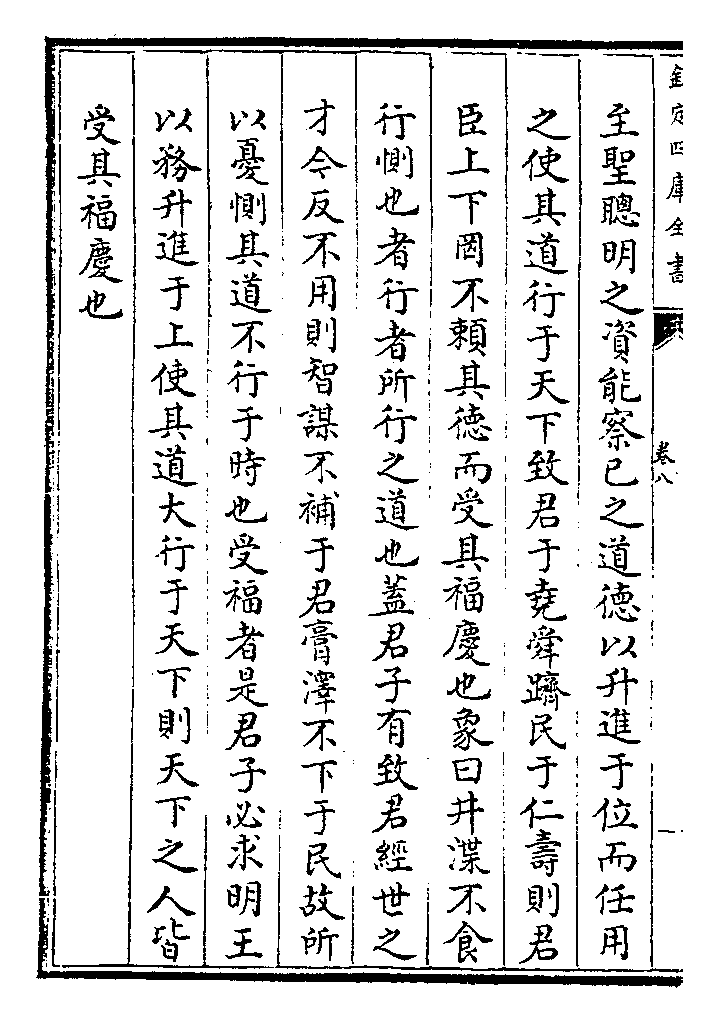 欽定四庫全書
卷八
至聖聰明之資能察已之道德以升進于位而任用
之使其道行于天下致君于堯舜躋民于仁壽則君
臣上下罔不賴其德而受其福慶也象曰井渫不食
行惻也者行者所行之道也蓋君子有致君經世之
才今反不用則智謀不補于君膏澤不下于民故所
以憂惻其道不行于時也受福者是君子必求明王
以務升進于上使其道大行于天下則天下之人皆
受其福慶也